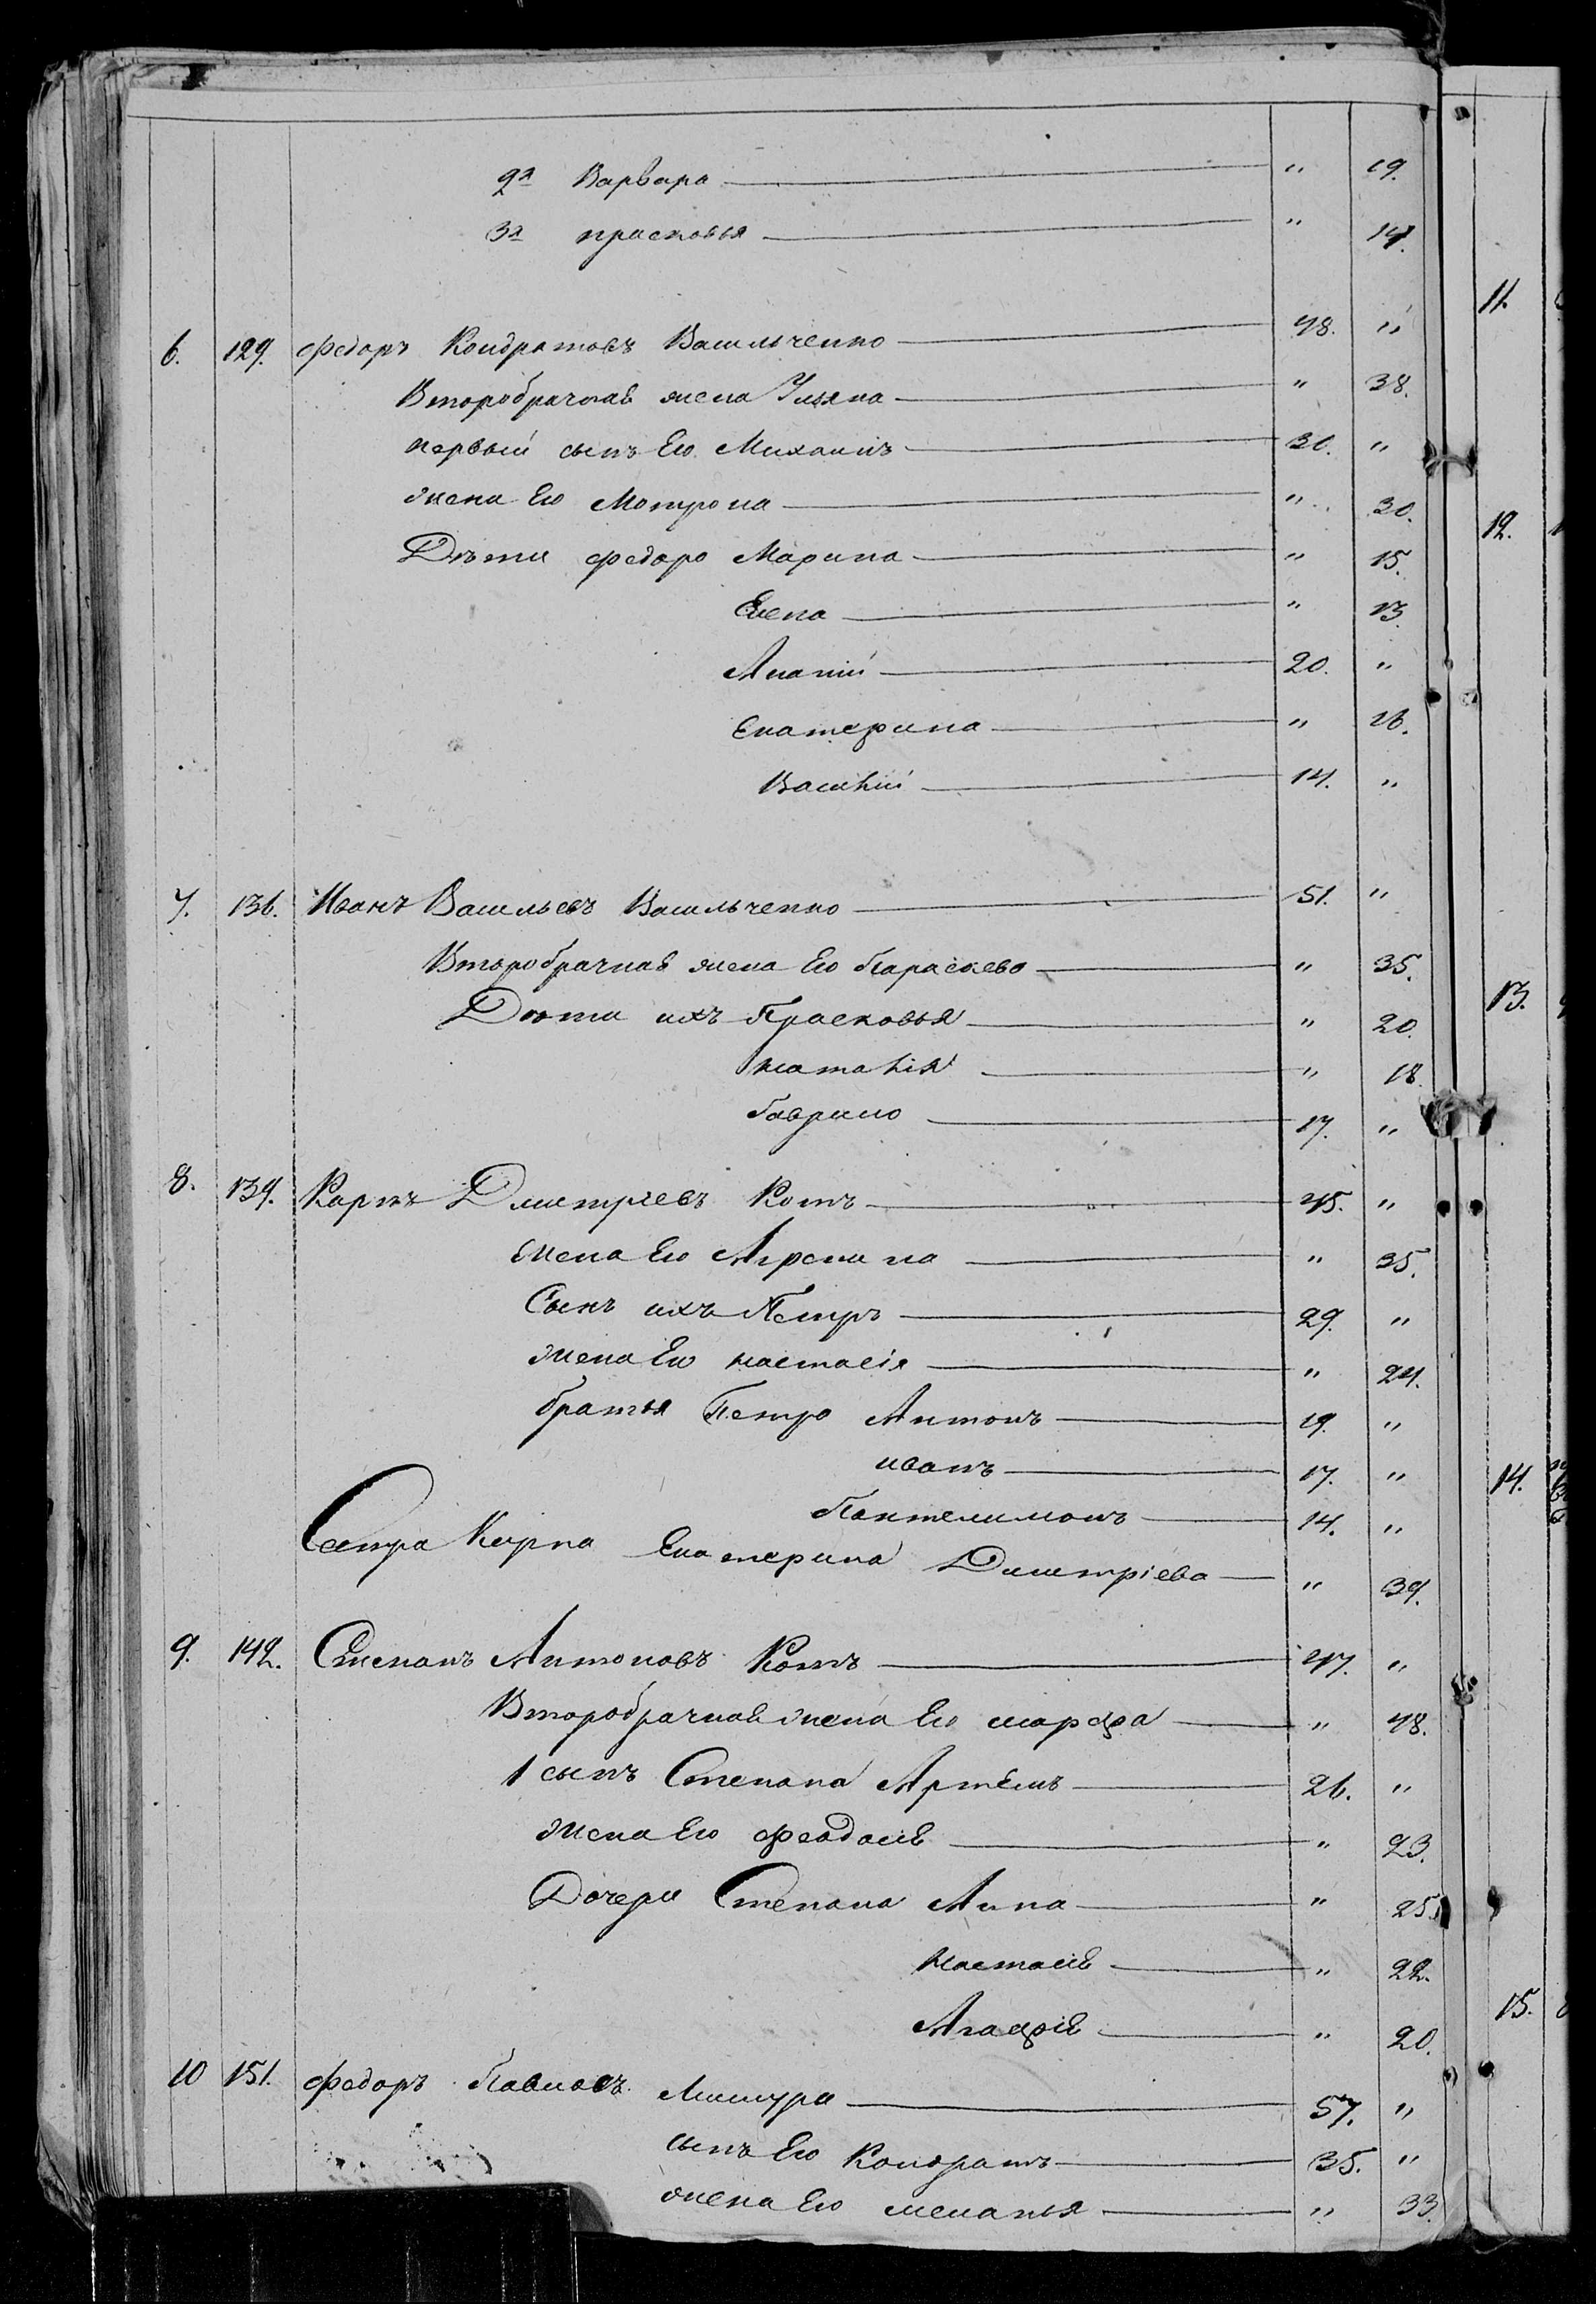 2я Варвара — " 19.
3я прасковья — " 14.
6. 129. Федоръ Кондратовъ Васильченко — 48. "
Второбрачная жена Ульяна — " 38.
первый сынъ Его Михаилъ — 30. "
жена Его Матрона — " 30.
Дѣти федора Марина — " 15.
Елена — " 13.
Ипатій — 20. "
Екатерина — " 16.
Василій — 14. "
7. 136. Иванъ Васильевъ Васильченко — 51. "
Второбрачная жена Его Параскева — " 35.
Дѣти ихъ Прасковья — " 20.
наталія — " 18.
Гаврило — 17. "
8. 139. Карпъ Дмитріевъ Котъ — 45. "
жена Его Агрепина — " 35.
Сынъ ихъ Петръ — 29. "
жена Его настасія — " 24.
братья Петра Антонъ — 19. "
иванъ — 17. "
Пантелимонъ — 14. "
Сестра Карпа Екатерина Дмитріева — " 39.
9. 142. Степанъ Антоновъ Котъ — 47. "
Второбрачная жена Его марфа — " 48.
1 сынъ Степана Артемъ — 26. "
жена Его феодосія — " 23.
Дочери Степана Анна — " 25.
настасія — " 22.
Агафія — " 20.
10 151. федоръ Павловъ Мишура — 57. "
сынъ Его Кондратъ — 35. "
жена Его меланья — " 33.
11.
12.
13.
14.
15.